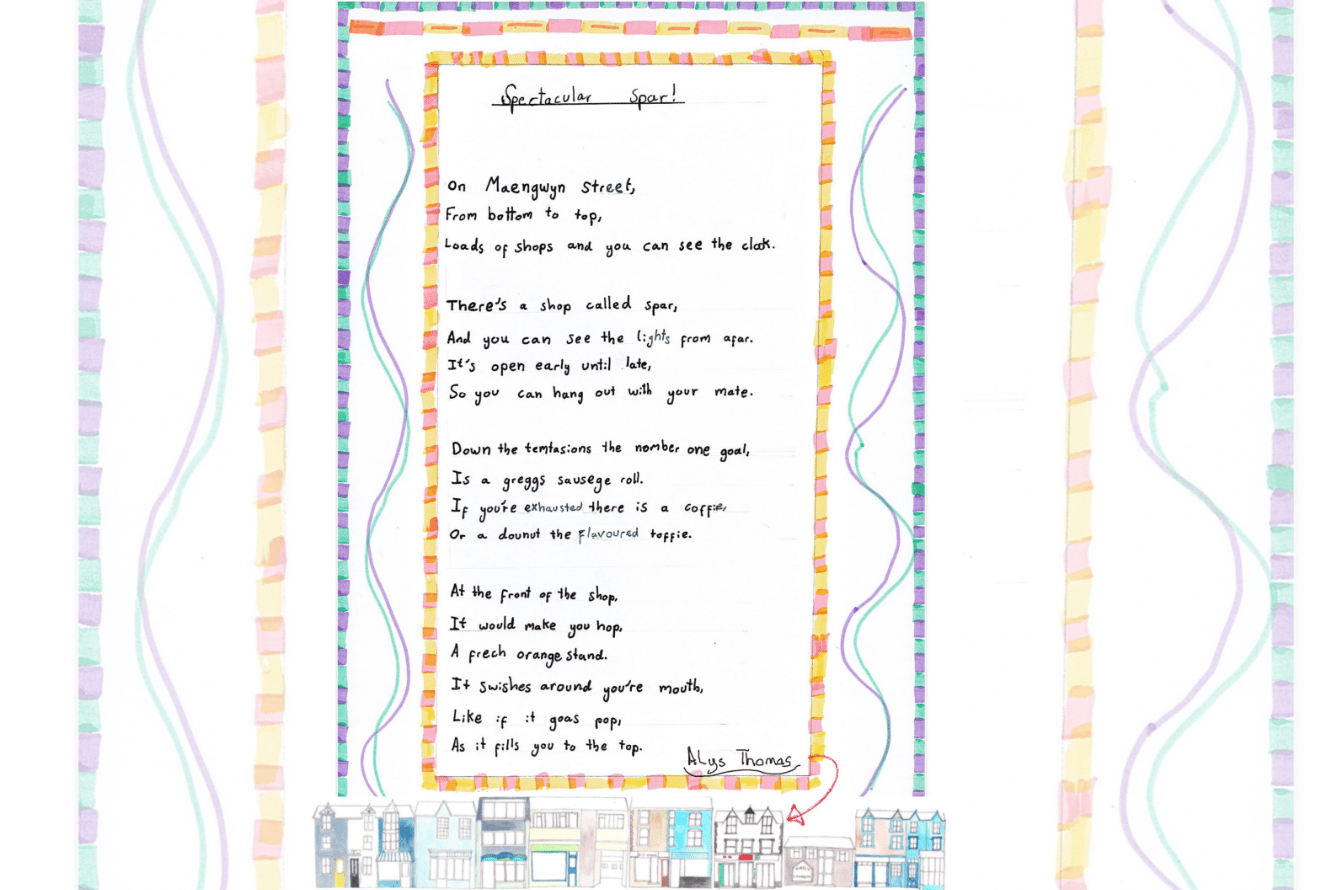 Spectacular Spar!
On Maengwyn Street,
From bottom to top,
Loads of shops and you can see the clock.
There's a shop called spar,
And you can see the lights from afar.
It's open early until late,
So you can hang out with your mate.
Down the temtasions the nomber one goal,
Is a greggs sausege roll.
If you're exhausted there is a coffie,
Or a dounut the flavoured toffie.
At the front of the shop,
It would make you hop,
A frech orange stand.
It swishes around you're mouth,
Like if it goas pop,
As it fills you to the top.
Alys Thomas